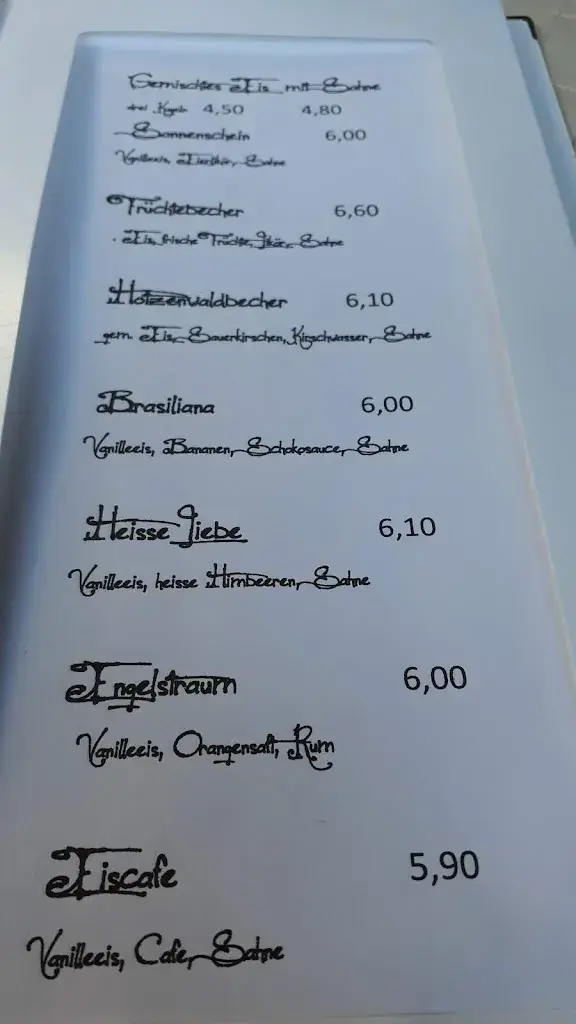 Gemischtes Eis mit Sahne
drei Kugeln 4,50 4,80
Sonnenschein 6,00
Vanilleeis, Eierlikör, Sahne
Früchtebecher 6,60
Eis, frische Früchte, Likör, Sahne
Hotzenwaldbecher 6,10
gem. Eis, Sauerkirschen, Kirschwasser, Sahne
Brasiliana 6,00
Vanilleeis, Bananen, Schokosauce, Sahne
Heisse Liebe 6,10
Vanilleeis, heisse Himbeeren, Sahne
Engelstraum 6,00
Vanilleeis, Orangensaft, Rum
Eiscafe 5,90
Vanilleeis, Cafe, Sahne